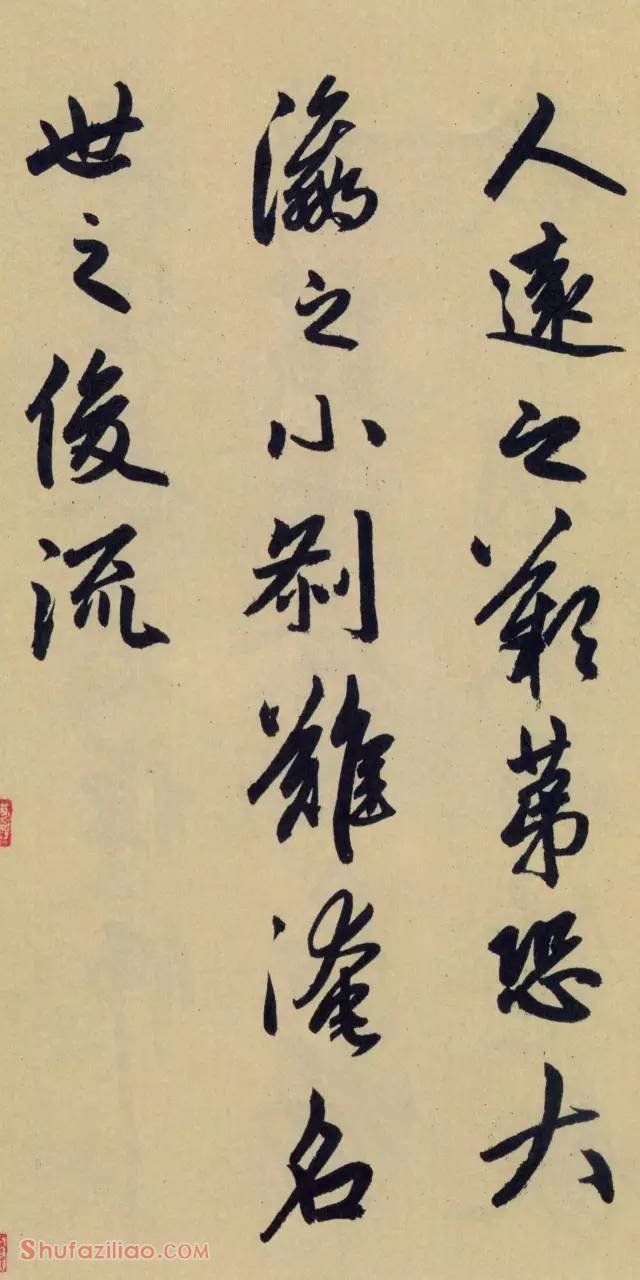 人遠之歎苐恐大
瀛之小刹難淹名
世之俊流
Shufaziliao.COM